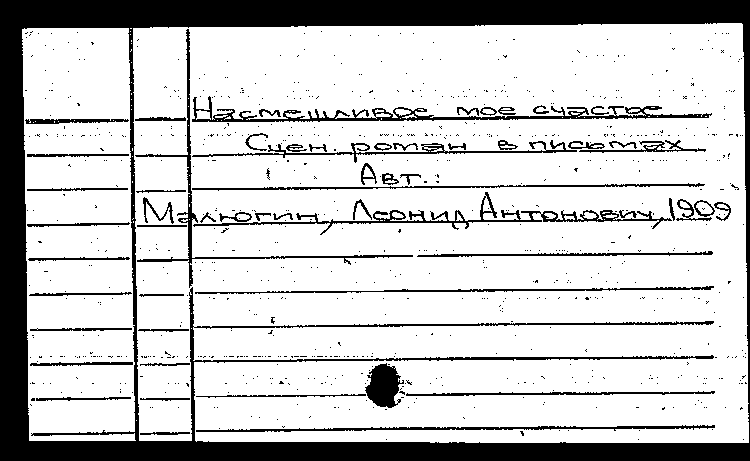 Насмешливое мое счастье
Сцен. роман в письмах
Авт.:
Малюгин, Леонид Антонович, 1909